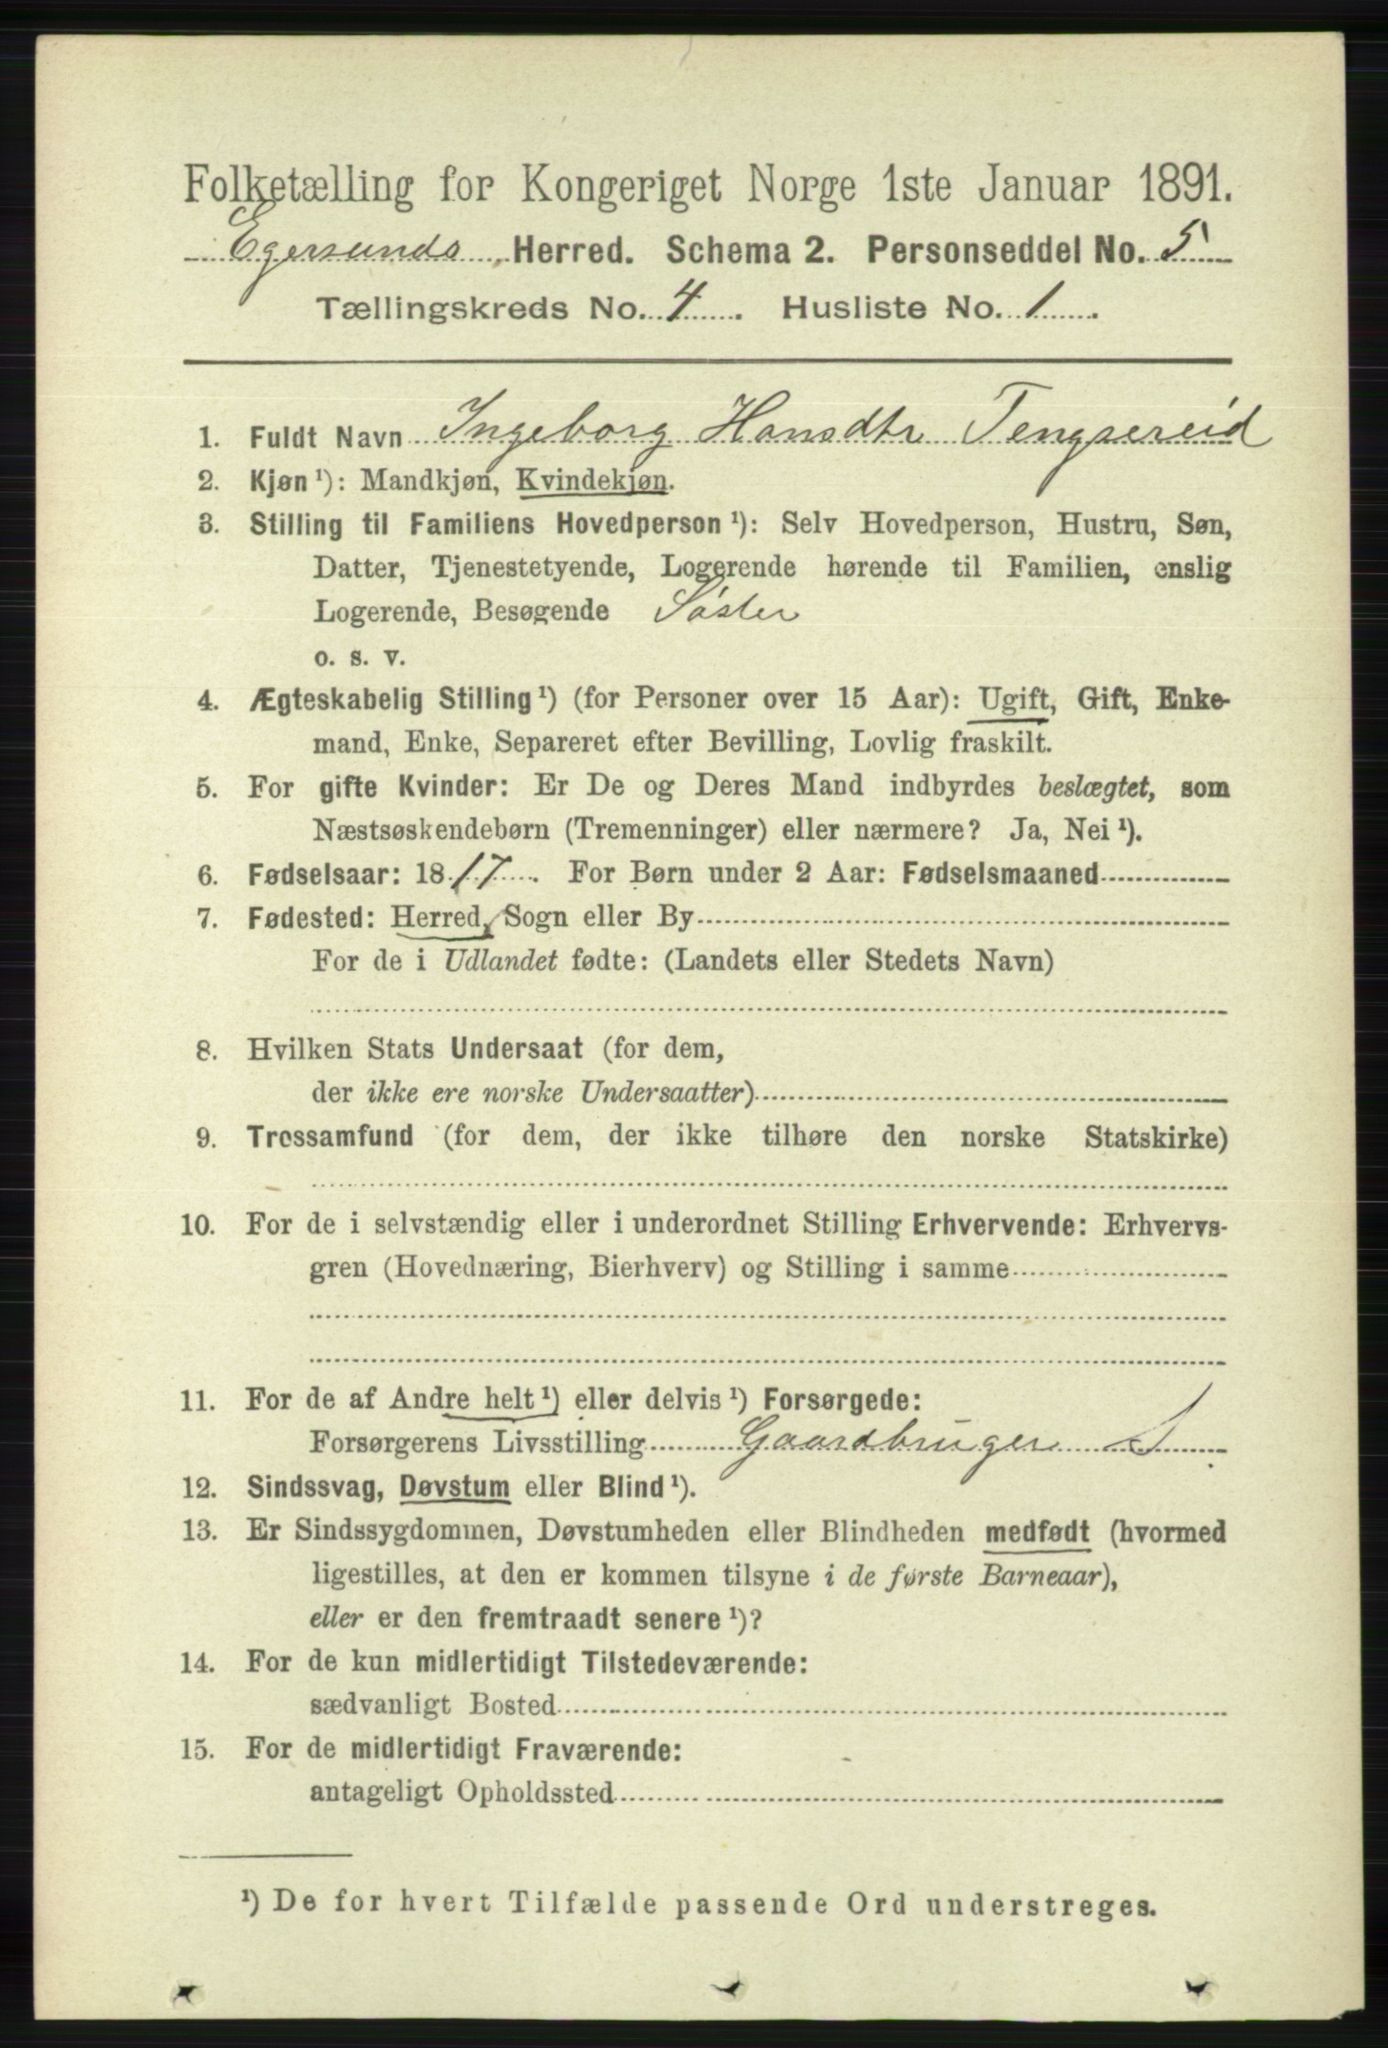 Folketælling for Kongeriget Norge 1ste Januar 1891.
Egersunds Herred. Schema 2. Personseddel No. 5
Tællingskreds No. 4. Husliste No. 1.
1. Fuldt Navn Ingeborg Hansdtr Tengsereid
2. Kjøn ¹): Mandkjøn, Kvindekjøn.
3. Stilling til Familiens Hovedperson ¹): Selv Hovedperson, Hustru, Søn,
Datter, Tjenestetyende, Logerende hørende til Familien, enslig
Logerende, Besøgende Søster
o. s. v.
4. Ægteskabelig Stilling ¹) (for Personer over 15 Aar): Ugift, Gift, Enke-
mand, Enke, Separeret efter Bevilling, Lovlig fraskilt.
5. For gifte Kvinder: Er De og Deres Mand indbyrdes beslægtet, som
Næstsøskendebørn (Tremenninger) eller nærmere? Ja, Nei ¹).
6. Fødselsaar: 1817. For Børn under 2 Aar: Fødselsmaaned
7. Fødested: Herred, Sogn eller By
For de i Udlandet fødte: (Landets eller Stedets Navn)
8. Hvilken Stats Undersaat (for dem,
der ikke ere norske Undersaatter)
9. Trossamfund (for dem, der ikke tilhøre den norske Statskirke)
10. For de i selvstændig eller i underordnet Stilling Erhvervende: Erhvervs-
gren (Hovednæring, Bierhverv) og Stilling i samme
11. For de af Andre helt ¹) eller delvis ¹) Forsørgede:
Forsørgerens Livsstilling Gaardbruger S
12. Sindssvag, Døvstum eller Blind ¹).
13. Er Sindssygdommen, Døvstumheden eller Blindheden medfødt (hvormed
ligestilles, at den er kommen tilsyne i de første Barneaar),
eller er den fremtraadt senere ¹)?
14. For de kun midlertidigt Tilstedeværende:
sædvanligt Bosted
15. For de midlertidigt Fraværende:
antageligt Opholdssted
¹) De for hvert Tilfælde passende Ord understreges.